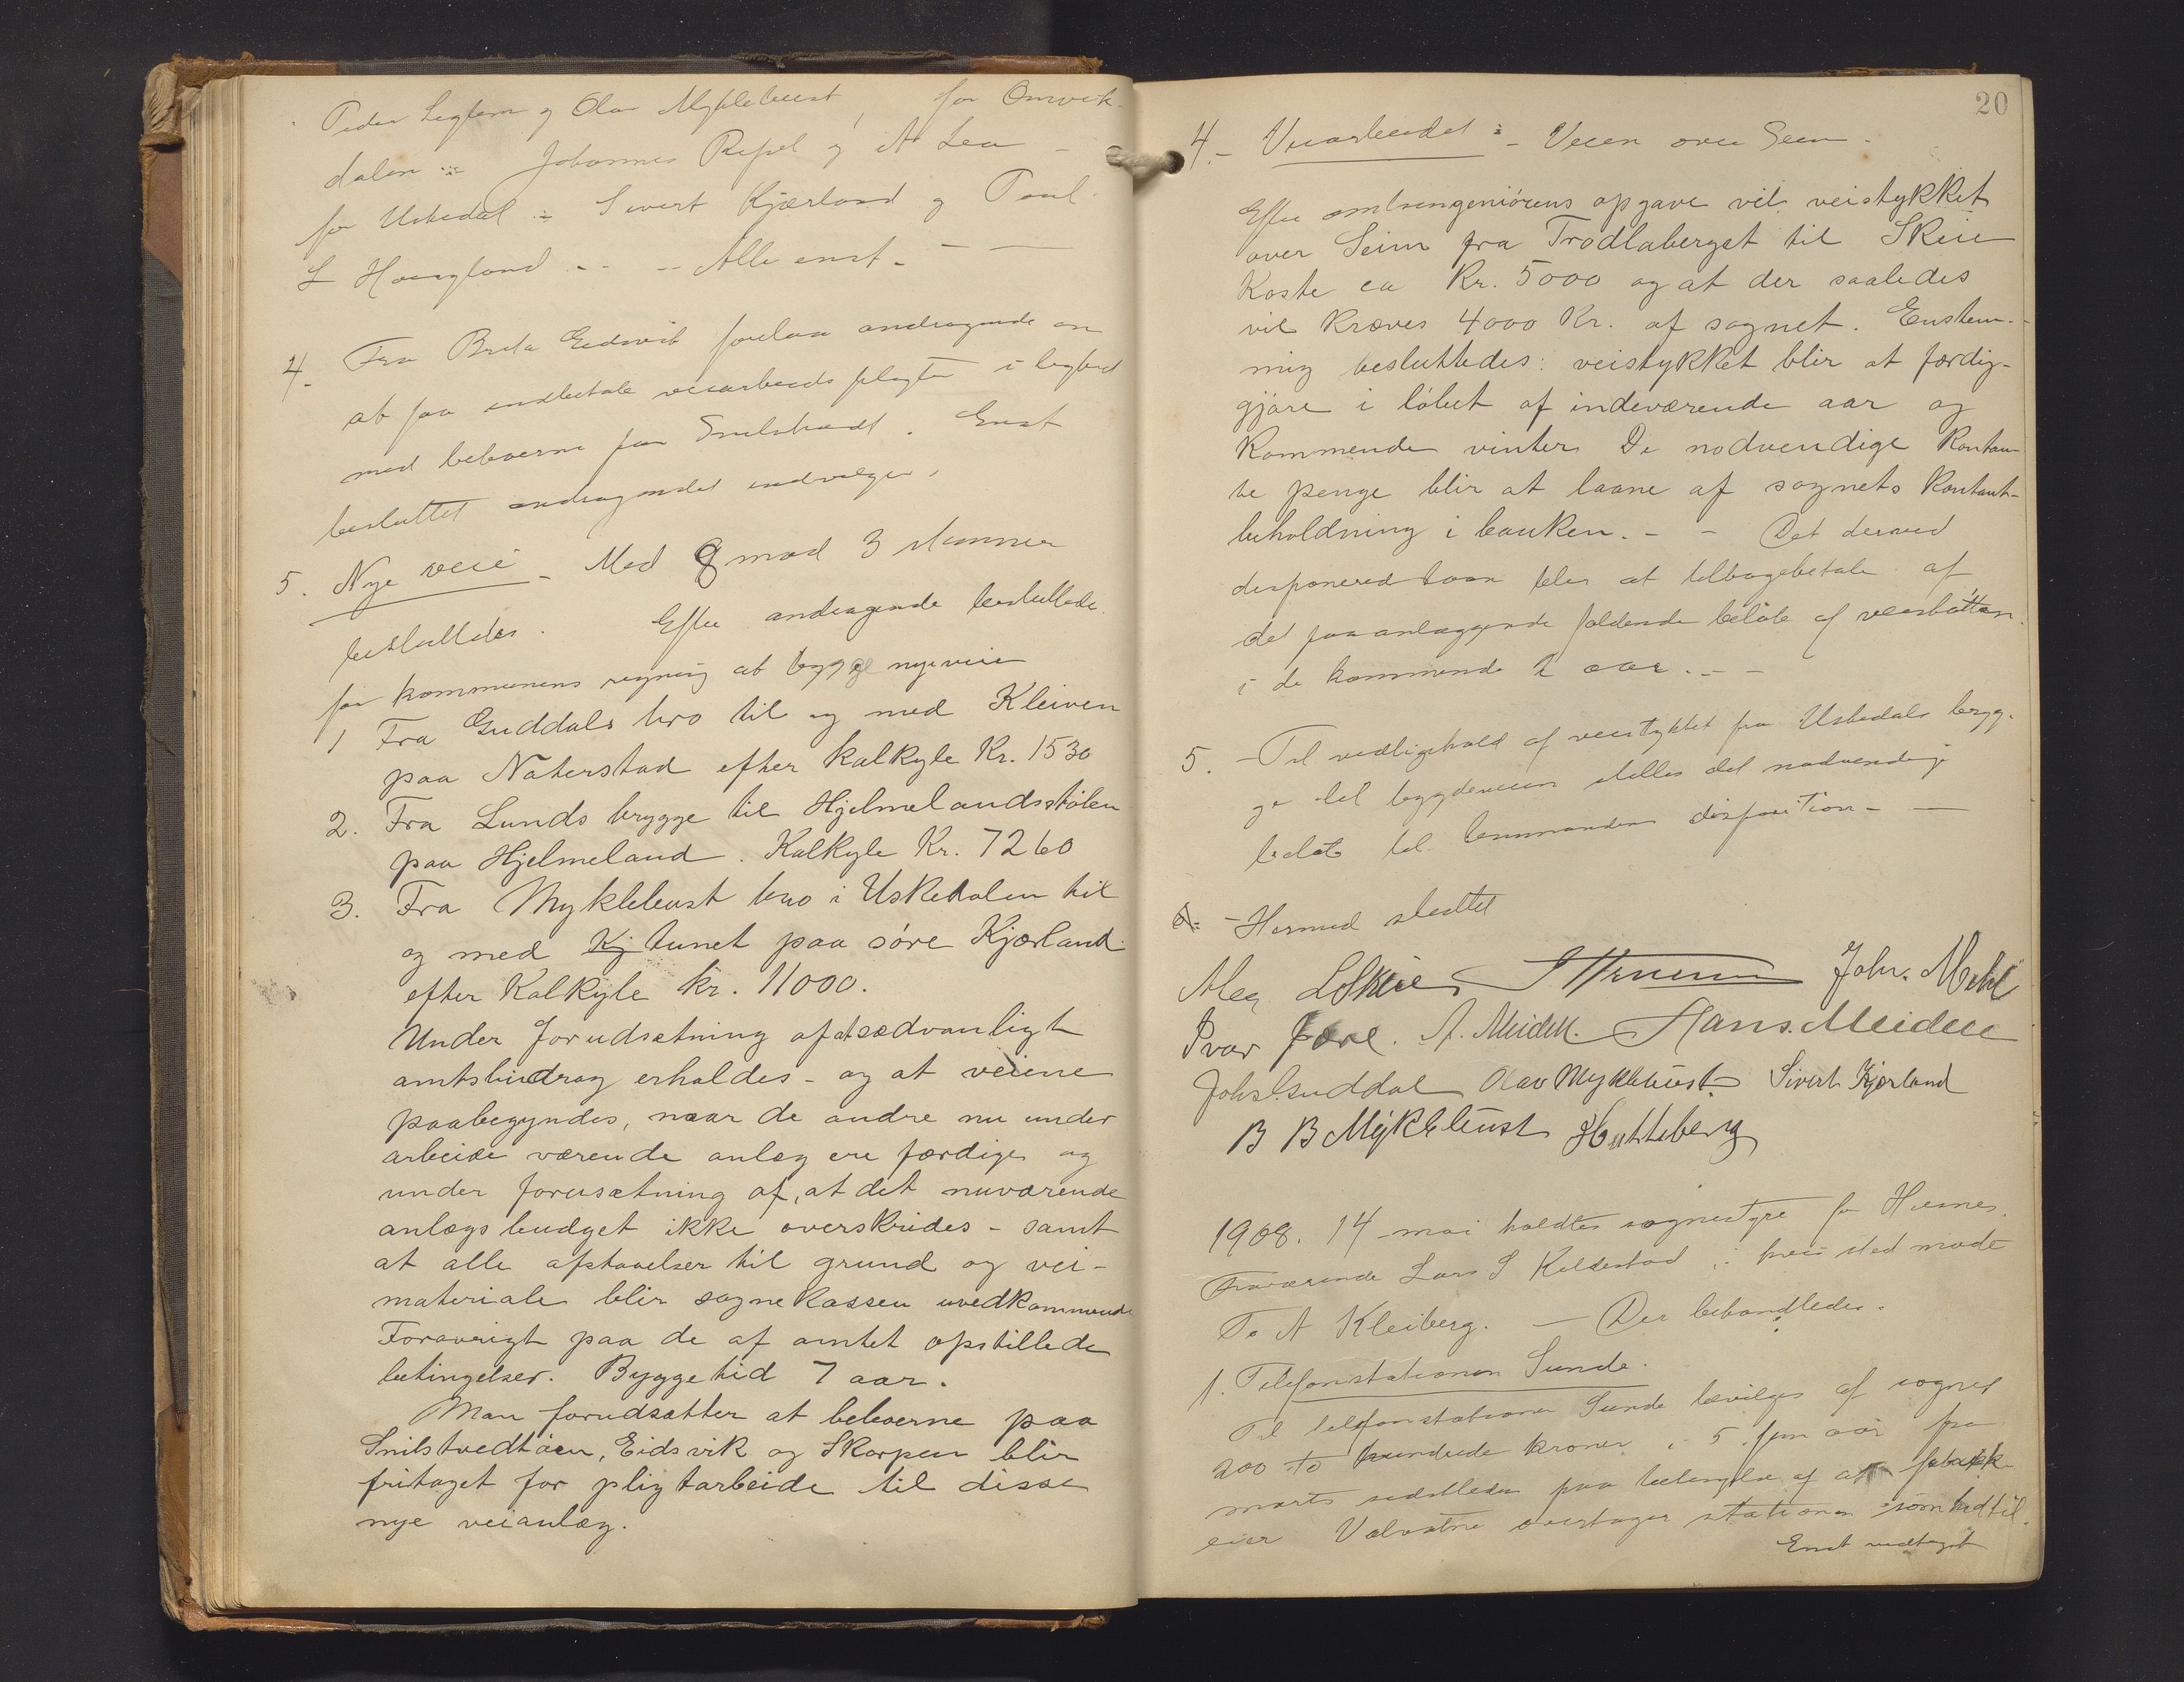 Peder Leglem og Olav Myklebust, for Omvik-
dalen :- Johannes Røssel og A Lea -
for Uskedal :- Sivert Kjærland og Poul
L Haugland . - - Alle enst. - -
4. Fra Brita Eidsvik forelaa andragende om
at faa indbetale veiarbeids pligten i lighed
med beboerne paa Snilstvedt. Enst
besluttet andragendet indvilges.
5. Nye veie - Med 8 mod 3 stemmer
besluttedes. Efter andragende besluttede
for kommunens regning at bygge nye veie
1 Fra Guddals bro til og med Kleiven
paa Naterstad efter kalkyle Kr. 1530
2. Fra Lunds brygge til Hjelmelandsstølen
paa Hjelmeland. Kalkyle Kr. 7260
3. Fra Myklebust bro i Uskedalen til
og med Kj tunet paa søre Kjærland
efter Kalkyle kr. 11000.
Under forudsætning af at sædvanligt
amtsbidrag erholdes - og at veiene
paabegyndes, naar de andre nu under
arbeide værende anlæg ere færdige og
under forusætning af, at det nuværende
anlægsbudget ikke overskrides - samt
at alle afstaaelser til grund og vei-
materiale blir sognekassen uvedkommende
Foravrigt paa de af amtet opstillede
betingelser. Byggetid 7 aar.
Man forudsætter at beboerne paa
Snilstvedtåen, Eidsvik og Skorpen blir
fritaget for pligtarbeide til disse
nye veianlæg.
20
4. - Veiarbeidet :- Veien over Seim -
Efter amtsingeniørens opgave vil veistykket
over Seim fra Trodlaberget til Skeie
Koste ca Kr. 5000 og at der saaledes
vil kræves 4000 Kr. af sognet. Enstem-
mig besluttedes: veistykket blir at færdig-
gjøre i løbet af indeværende aar og
kommende vinter. De nødvendige kontan-
te penge blir at laane af sognets kontant-
beholdning i banken. - - Det derved
disponered laan blir at tilbagebetale af
det paa anlæggende faldende beløb af veiskatten
i de kommende 2 aar. - -
5. - Til vedligehold af veistykket fra Uskedals bryg-
ge til bygdeveien stilles det nødvendige
beløb til lensmandens disposition - -
6. - Hermed sluttet
Aleg LSkeie Johs. Mehl
Ivar Fære. A. Meidell. Hans. Meidell
Johs. Guddal Olav Myklebust Sivert Kjærland
B B Myklebust Hutteberg
1908. 14 mai holdtes sognestyre paa Husnes.
Fraværende Lars S Kaldestad i hvis sted mødte
To A Kleiberg. - Der behandledes.
1. Telefonstationen Sunde.
Til telefonstationen Sunde bevilges af sognet
200 to hundrede kroner i 5 fem aar fra
marts sidstleden paa betingelse af at fabrikk-
eier Valvatne overtager stationen som hidtil.
Enst vedtaget